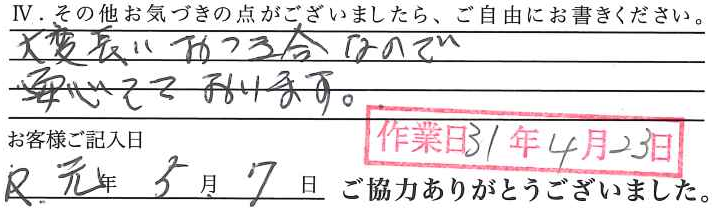 Ⅳ．その他お気づきの点がございましたら、ご自由にお書きください。
大変長いおつき合なので
安心して おります。
作業日31年4月23日
お客様ご記入日
R元年 5月 7日 ご協力ありがとうございました。